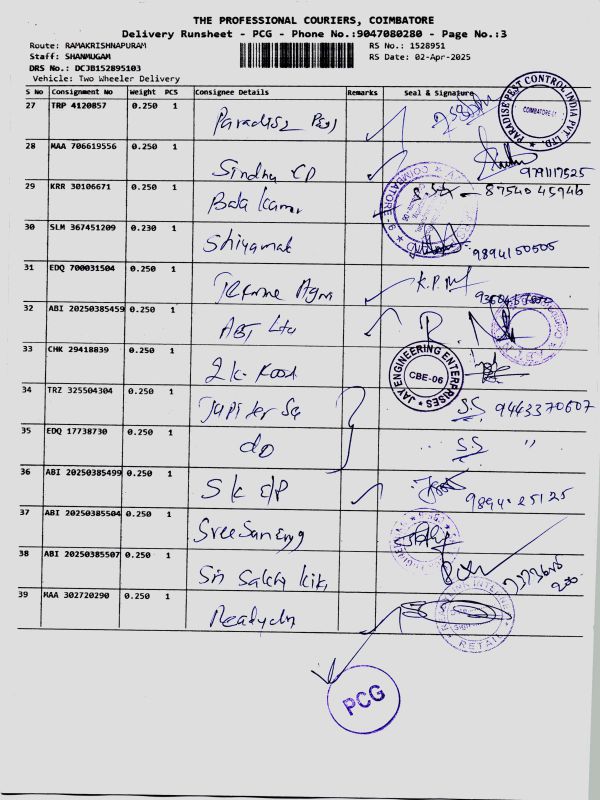 THE PROFESSIONAL COURIERS, COIMBATORE
Delivery Runsheet - PCG - Phone No.:9047080280 - Page No.:3
Route: RAMAKRISHNAPURAM RS No.: 1528951
Staff: SHANMUGAM RS Date: 02-Apr-2025
DRS No.: DCJB152895103
Vehicle: Two Wheeler Delivery
S No Consignment No Weight PCS Consignee Details Remarks Seal & Signature
27 TRP 4120857 0.250 1 Paradise PARADISE PEST CONTROL INDIA PVT. LTD. COIMBATORE
28 MAA 706619556 0.250 1 Sindhu CD 9791117525
29 KRR 30106671 0.250 1 Bala Kumar 87540 45946
COIMBATORE
30 SLM 367451209 0.230 1 Shiyamak 9894150505
31 EDQ 700031504 0.250 1 K.P.M
32 ABI 20250385459 0.250 1 ABT Ltd
33 CHK 29418839 0.250 1 2k Food JAY ENGINEERING ENTERPRISES CBE-06
34 TRZ 325504304 0.250 1 Jupiter S.S 9443370607
35 EDQ 17738730 0.250 1 do S.S "
36 ABI 20250385499 0.250 1 SK E/P 9894025125
37 ABI 20250385504 0.250 1 Sree San Engg
38 ABI 20250385507 0.250 1 Sri Sakthi
39 MAA 302720290 0.250 1 RETAIL
PCG